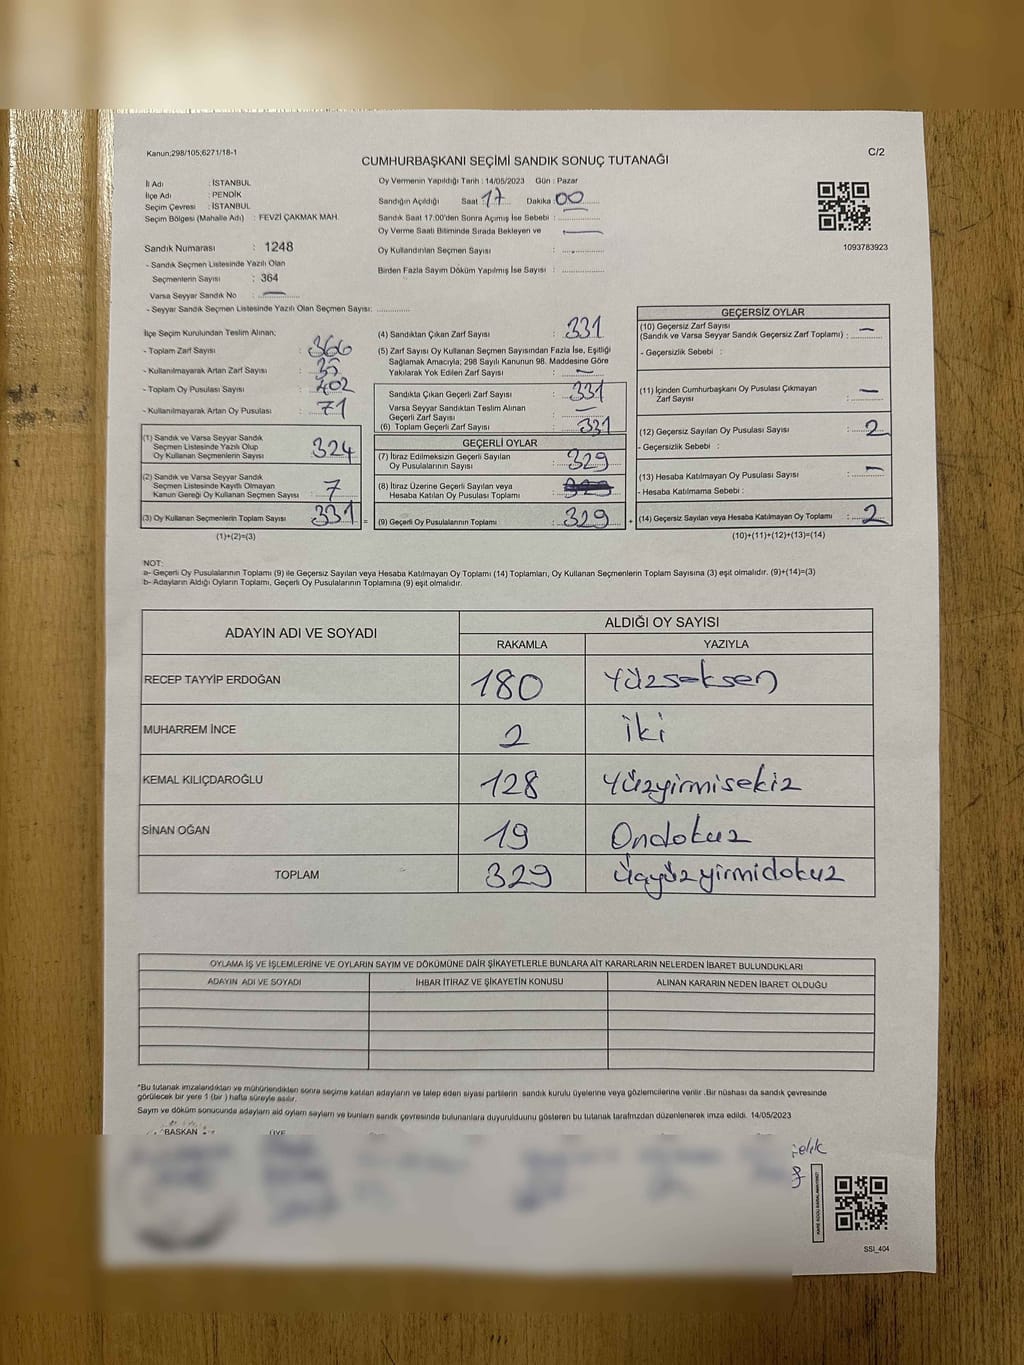 Kanun;298/105;6271/18-1
C/2
CUMHURBAŞKANI SEÇİMİ SANDIK SONUÇ TUTANAĞI
İl Adı : İSTANBUL
İlçe Adı : PENDİK
Seçim Çevresi : İSTANBUL
Seçim Bölgesi (Mahalle Adı) : FEVZİ ÇAKMAK MAH.
Sandık Numarası : 1248
- Sandık Seçmen Listesinde Yazılı Olan
Seçmenlerin Sayısı : 364
Varsa Seyyar Sandık No : —
- Seyyar Sandık Seçmen Listesinde Yazılı Olan Seçmen Sayısı: ............
Oy Vermenin Yapıldığı Tarih : 14/05/2023 Gün : Pazar
Sandığın Açıldığı Saat 17 Dakika 00
Sandık Saat 17:00'den Sonra Açımış İse Sebebi : ............
Oy Verme Saati Bitiminde Sırada Bekleyen ve —
Oy Kullandırılan Seçmen Sayısı : ............
Birden Fazla Sayım Döküm Yapılmış İse Sayısı : ............
1093783923
İlçe Seçim Kurulundan Teslim Alınan;
- Toplam Zarf Sayısı : 366
- Kullanılmayarak Artan Zarf Sayısı : 35
- Toplam Oy Pusulası Sayısı : 402
- Kullanılmayarak Artan Oy Pusulası : 71
(1) Sandık ve Varsa Seyyar Sandık
Seçmen Listesinde Yazılı Olup
Oy Kullanan Seçmenlerin Sayısı : 324
(2) Sandık ve Varsa Seyyar Sandık
Seçmen Listesinde Kayıtlı Olmayan
Kanun Gereği Oy Kullanan Seçmen Sayısı : 7
(3) Oy Kullanan Seçmenlerin Toplam Sayısı : 331 =
(1)+(2)=(3)
(4) Sandıktan Çıkan Zarf Sayısı : 331
(5) Zarf Sayısı Oy Kullanan Seçmen Sayısından Fazla İse, Eşitliği
Sağlamak Amacıyla; 298 Sayılı Kanunun 98. Maddesine Göre
Yakılarak Yok Edilen Zarf Sayısı : —
Sandıkta Çıkan Geçerli Zarf Sayısı : 331
Varsa Seyyar Sandıktan Teslim Alınan
Geçerli Zarf Sayısı : —
(6) Toplam Geçerli Zarf Sayısı : 331
GEÇERLİ OYLAR
(7) İtiraz Edilmeksizin Geçerli Sayılan
Oy Pusulalarının Sayısı : 329
(8) İtiraz Üzerine Geçerli Sayılan veya
Hesaba Katılan Oy Pusulası Toplamı :
(9) Geçerli Oy Pusulalarının Toplamı : 329 +
GEÇERSİZ OYLAR
(10) Geçersiz Zarf Sayısı
(Sandık ve Varsa Seyyar Sandık Geçersiz Zarf Toplamı) : —
- Geçersizlik Sebebi :
(11) İçinden Cumhurbaşkanı Oy Pusulası Çıkmayan
Zarf Sayısı : —
(12) Geçersiz Sayılan Oy Pusulası Sayısı : 2
- Geçersizlik Sebebi :
(13) Hesaba Katılmayan Oy Pusulası Sayısı : —
- Hesaba Katılmama Sebebi :
(14) Geçersiz Sayılan veya Hesaba Katılmayan Oy Toplamı : 2
(10)+(11)+(12)+(13)=(14)
NOT:
a- Geçerli Oy Pusulalarının Toplamı (9) ile Geçersiz Sayılan veya Hesaba Katılmayan Oy Toplamı (14) Toplamları, Oy Kullanan Seçmenlerin Toplam Sayısına (3) eşit olmalıdır. (9)+(14)=(3)
b- Adayların Aldığı Oyların Toplamı, Geçerli Oy Pusulalarının Toplamına (9) eşit olmalıdır.
ADAYIN ADI VE SOYADI
ALDIĞI OY SAYISI
RAKAMLA YAZIYLA
RECEP TAYYİP ERDOĞAN 180 Yüzseksen
MUHARREM İNCE 2 iki
KEMAL KILIÇDAROĞLU 128 Yüzyirmisekiz
SİNAN OĞAN 19 Ondokuz
TOPLAM 329 Üçyüzyirmidokuz
OYLAMA İŞ VE İŞLEMLERİNE VE OYLARIN SAYIM VE DÖKÜMÜNE DAİR ŞİKAYETLERLE BUNLARA AİT KARARLARIN NELERDEN İBARET BULUNDUKLARI
ADAYIN ADI VE SOYADI İHBAR İTİRAZ VE ŞİKAYETİN KONUSU ALINAN KARARIN NEDEN İBARET OLDUĞU
*Bu tutanak imzalandıktan ve mühürlendikten sonra seçime katılan adayların ve talep eden siyasi partilerin sandık kurulu üyelerine veya gözlemcilerine verilir. Bir nüshası da sandık çevresinde
görülecek bir yere 1 (bir) hafta süreyle asılır.
Sayım ve döküm sonucunda adayların ald oyların sayların ve bunların sandık çevresinde bulunanlara duyurulduunu gösteren bu tutanak tarafmzdan düzenlenerek imza edildi. 14/05/2023
BAŞKAN ÜYE
SSI_404